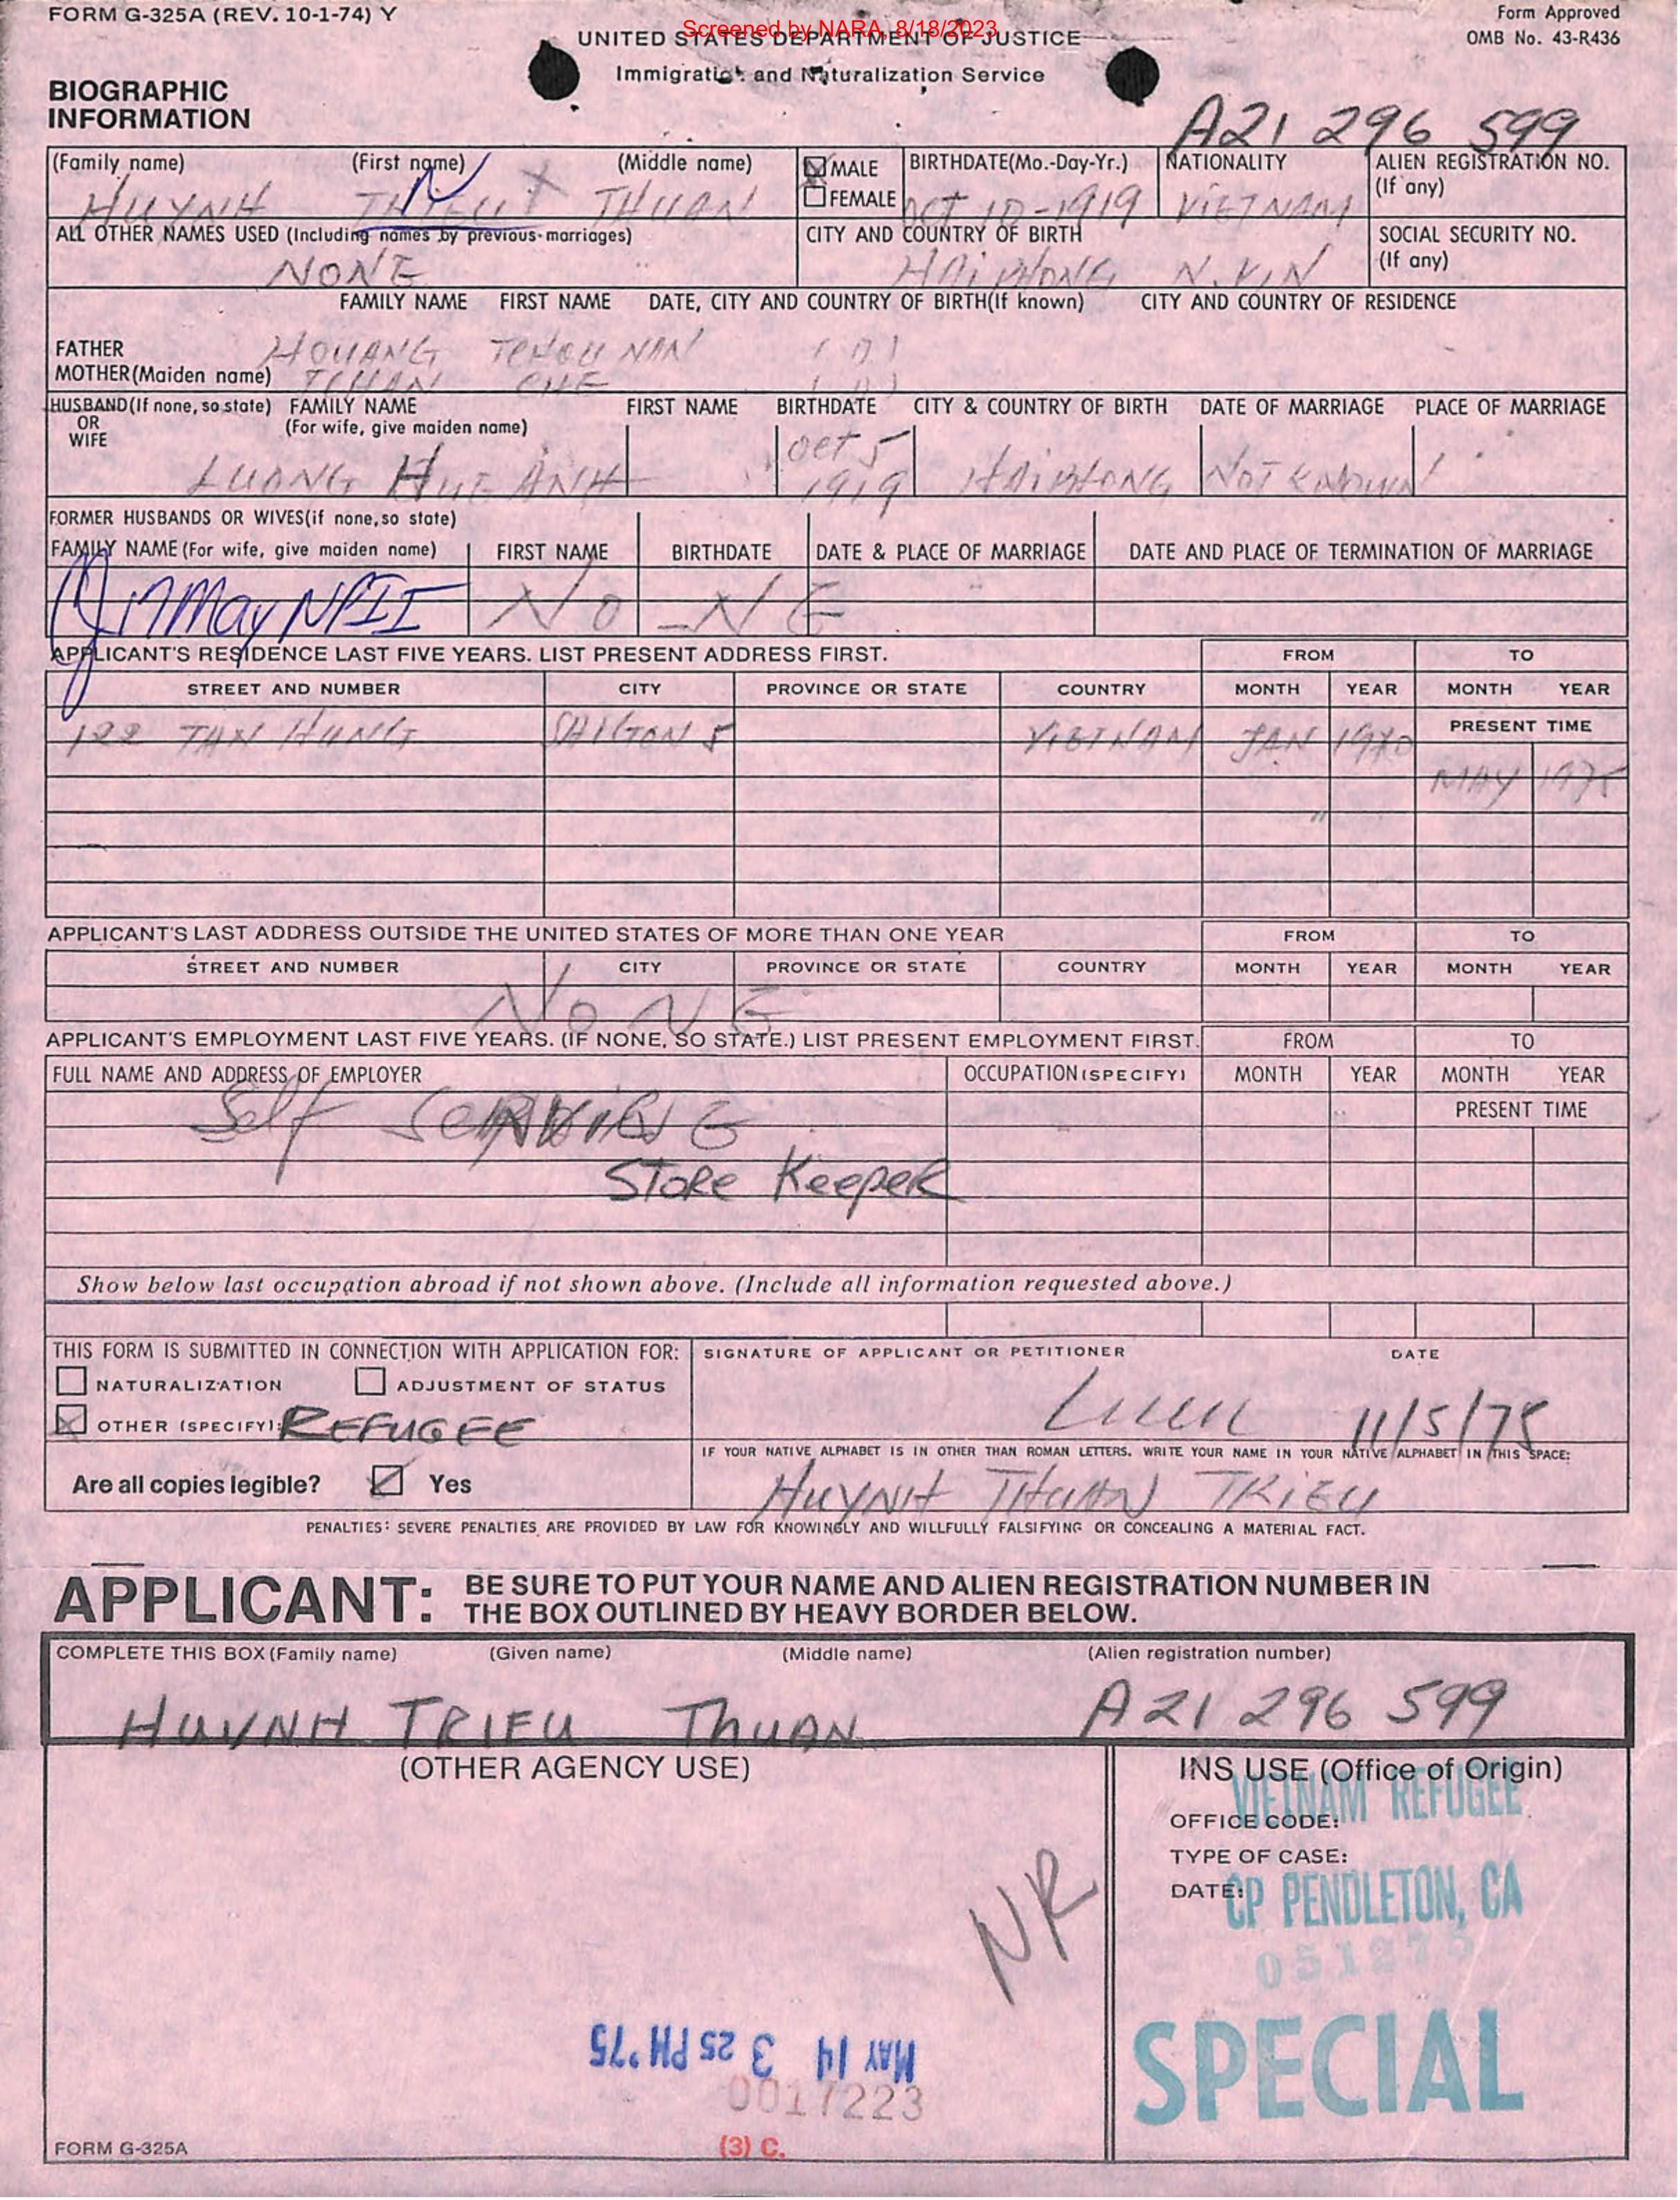 FORM G-325A (REV. 10-1-74) Y
Screened by NARA, 8/18/2023
Form Approved
OMB No. 43-R436
UNITED STATES DEPARTMENT OF JUSTICE
Immigration and Naturalization Service
BIOGRAPHIC
INFORMATION
A21 296 599
(Family name) (First name) (Middle name) MALE BIRTHDATE(Mo.-Day-Yr.) NATIONALITY ALIEN REGISTRATION NO.
FEMALE (If any)
HUYNH THUAN OCT 10-1919 VIETNAM
ALL OTHER NAMES USED (Including names by previous marriages) CITY AND COUNTRY OF BIRTH SOCIAL SECURITY NO.
(If any)
NONE HAIPHONG N. VIN
FAMILY NAME FIRST NAME DATE, CITY AND COUNTRY OF BIRTH(If known) CITY AND COUNTRY OF RESIDENCE
FATHER HOUANG TCHOU NAN
MOTHER(Maiden name) TCHAN CHE
HUSBAND(If none, so state) FAMILY NAME FIRST NAME BIRTHDATE CITY & COUNTRY OF BIRTH DATE OF MARRIAGE PLACE OF MARRIAGE
OR (For wife, give maiden name)
WIFE
LUONG HUE ANH Oct 5 1919 HAIPHONG NOT KNOWN
FORMER HUSBANDS OR WIVES(if none, so state)
FAMILY NAME (For wife, give maiden name) FIRST NAME BIRTHDATE DATE & PLACE OF MARRIAGE DATE AND PLACE OF TERMINATION OF MARRIAGE
NO NE
APPLICANT'S RESIDENCE LAST FIVE YEARS. LIST PRESENT ADDRESS FIRST. FROM TO
STREET AND NUMBER CITY PROVINCE OR STATE COUNTRY MONTH YEAR MONTH YEAR
122 TAN HUNG SAIGON 5 VIETNAM JAN 1970 PRESENT TIME
MAY 1975
APPLICANT'S LAST ADDRESS OUTSIDE THE UNITED STATES OF MORE THAN ONE YEAR FROM TO
STREET AND NUMBER CITY PROVINCE OR STATE COUNTRY MONTH YEAR MONTH YEAR
NONE
APPLICANT'S EMPLOYMENT LAST FIVE YEARS. (IF NONE, SO STATE.) LIST PRESENT EMPLOYMENT FIRST. FROM TO
FULL NAME AND ADDRESS OF EMPLOYER OCCUPATION (SPECIFY) MONTH YEAR MONTH YEAR
PRESENT TIME
Self
STORE KeepeR
Show below last occupation abroad if not shown above. (Include all information requested above.)
THIS FORM IS SUBMITTED IN CONNECTION WITH APPLICATION FOR: SIGNATURE OF APPLICANT OR PETITIONER DATE
NATURALIZATION ADJUSTMENT OF STATUS
11/5/75
OTHER (SPECIFY): REFUGEE
IF YOUR NATIVE ALPHABET IS IN OTHER THAN ROMAN LETTERS, WRITE YOUR NAME IN YOUR NATIVE ALPHABET IN THIS SPACE:
Are all copies legible? Yes
HUYNH THUAN TRIEU
PENALTIES: SEVERE PENALTIES ARE PROVIDED BY LAW FOR KNOWINGLY AND WILLFULLY FALSIFYING OR CONCEALING A MATERIAL FACT.
APPLICANT: BE SURE TO PUT YOUR NAME AND ALIEN REGISTRATION NUMBER IN
THE BOX OUTLINED BY HEAVY BORDER BELOW.
COMPLETE THIS BOX (Family name) (Given name) (Middle name) (Alien registration number)
HUYNH TRIEU THUAN A21 296 599
(OTHER AGENCY USE) INS USE (Office of Origin)
VIETNAM REFUGEE
OFFICE CODE:
TYPE OF CASE:
DATE:
CP PENDLETON, CA
051275
NR
SPECIAL
MAY 14 3 25 PM '75
0017223
(3) C.
FORM G-325A